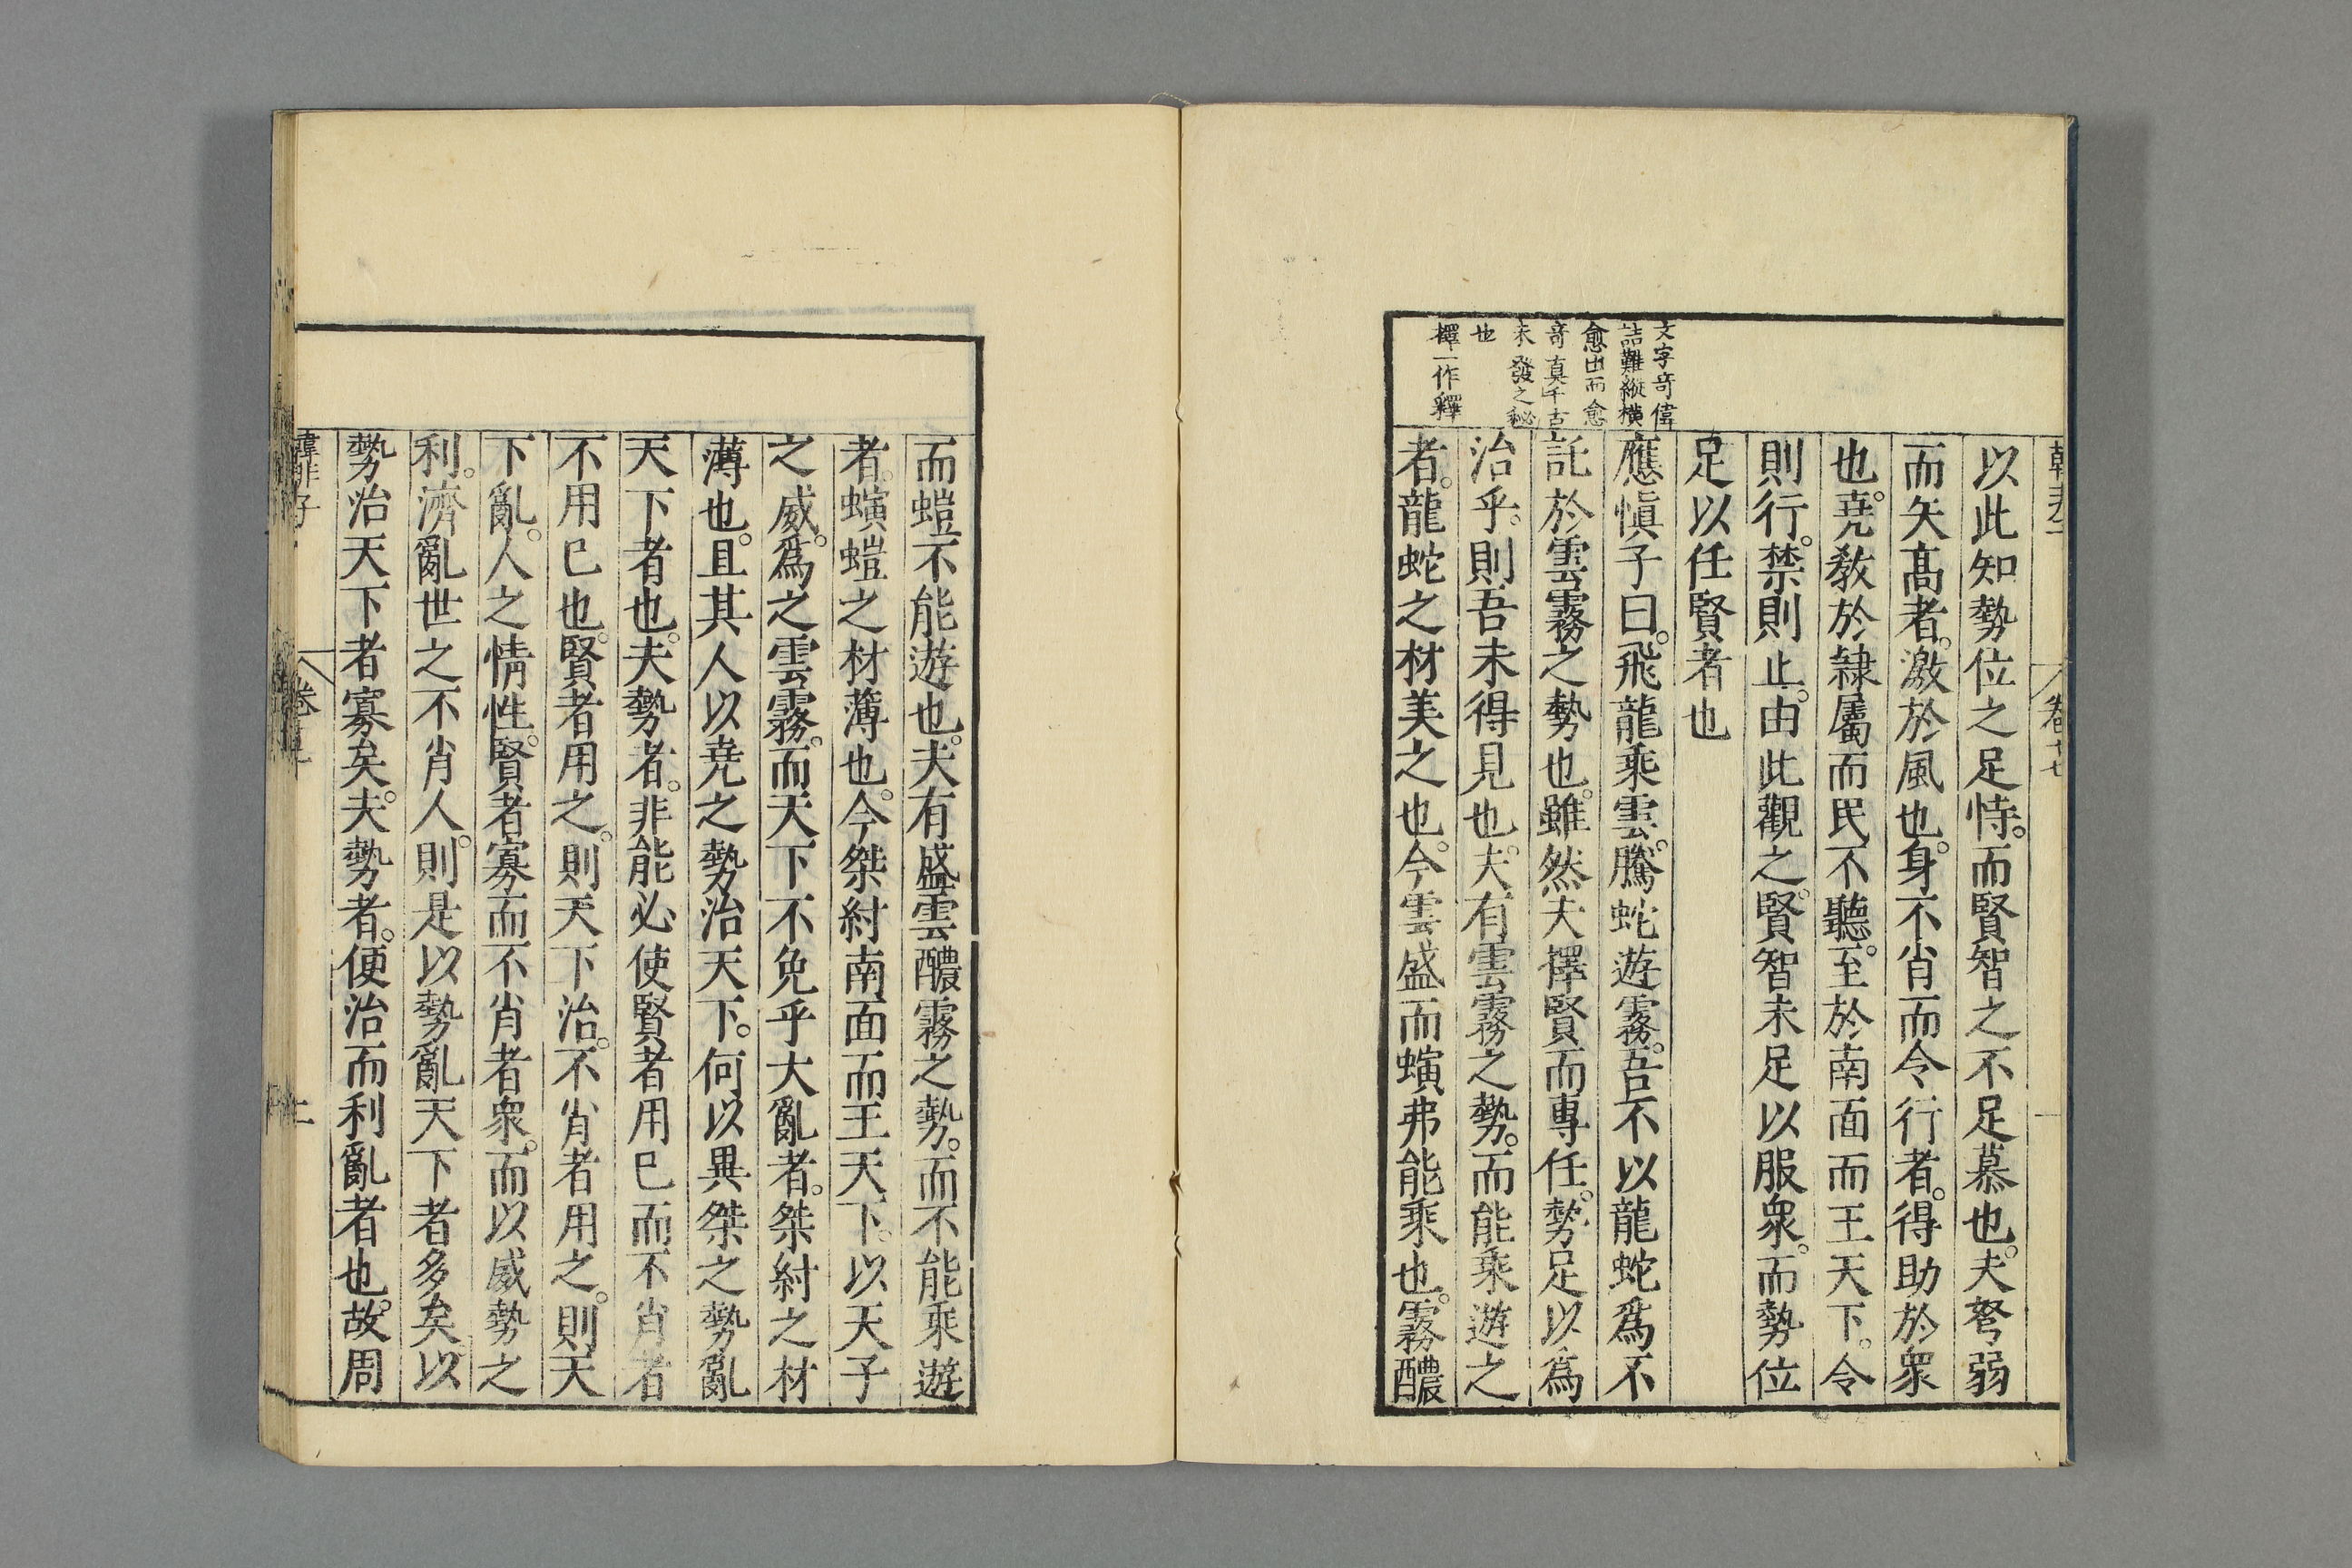 韓非子
卷十七
以此知勢位之足恃。而賢智之不足慕也。夫弩弱
而矢髙者。激於風也。身不肖而令行者。得助於衆
也。堯敎於隸屬而民不聽。至於南面而王天下。令
則行。禁則止。由此觀之。賢智未足以服衆。而勢位
足以任賢者也
應愼子曰。飛龍乘雲。騰蛇遊霧。吾不以龍蛇爲不
託於雲霧之勢也。雖然夫擇賢而專任。勢足以爲
治乎。則吾未得見也。夫有雲霧之勢。而能乘遊之
者。龍蛇之材美之也。今雲盛而螾弗能乘也。霧醲
文字奇偉
詰難縱橫
愈出而愈
奇真千古
未發之秘
也
擇一作釋
而螘不能遊也。夫有盛雲醲霧之勢。而不能乘遊
者。螾螘之材薄也。今桀紂南面而王天下。以天子
之威。爲之雲霧。而天下不免乎大亂者。桀紂之材
薄也。且其人以堯之勢治天下。何以異桀之勢亂
天下者也。夫勢者。非能必使賢者用已而不肖者
不用已也。賢者用之。則天下治。不肖者用之。則天
下亂。人之情性。賢者寡而不肖者衆。而以威勢之
利。濟亂世之不肖人。則是以勢亂天下者多矣以
勢治天下者寡矣。夫勢者。便治而利亂者也。故周
韓非子
卷
二